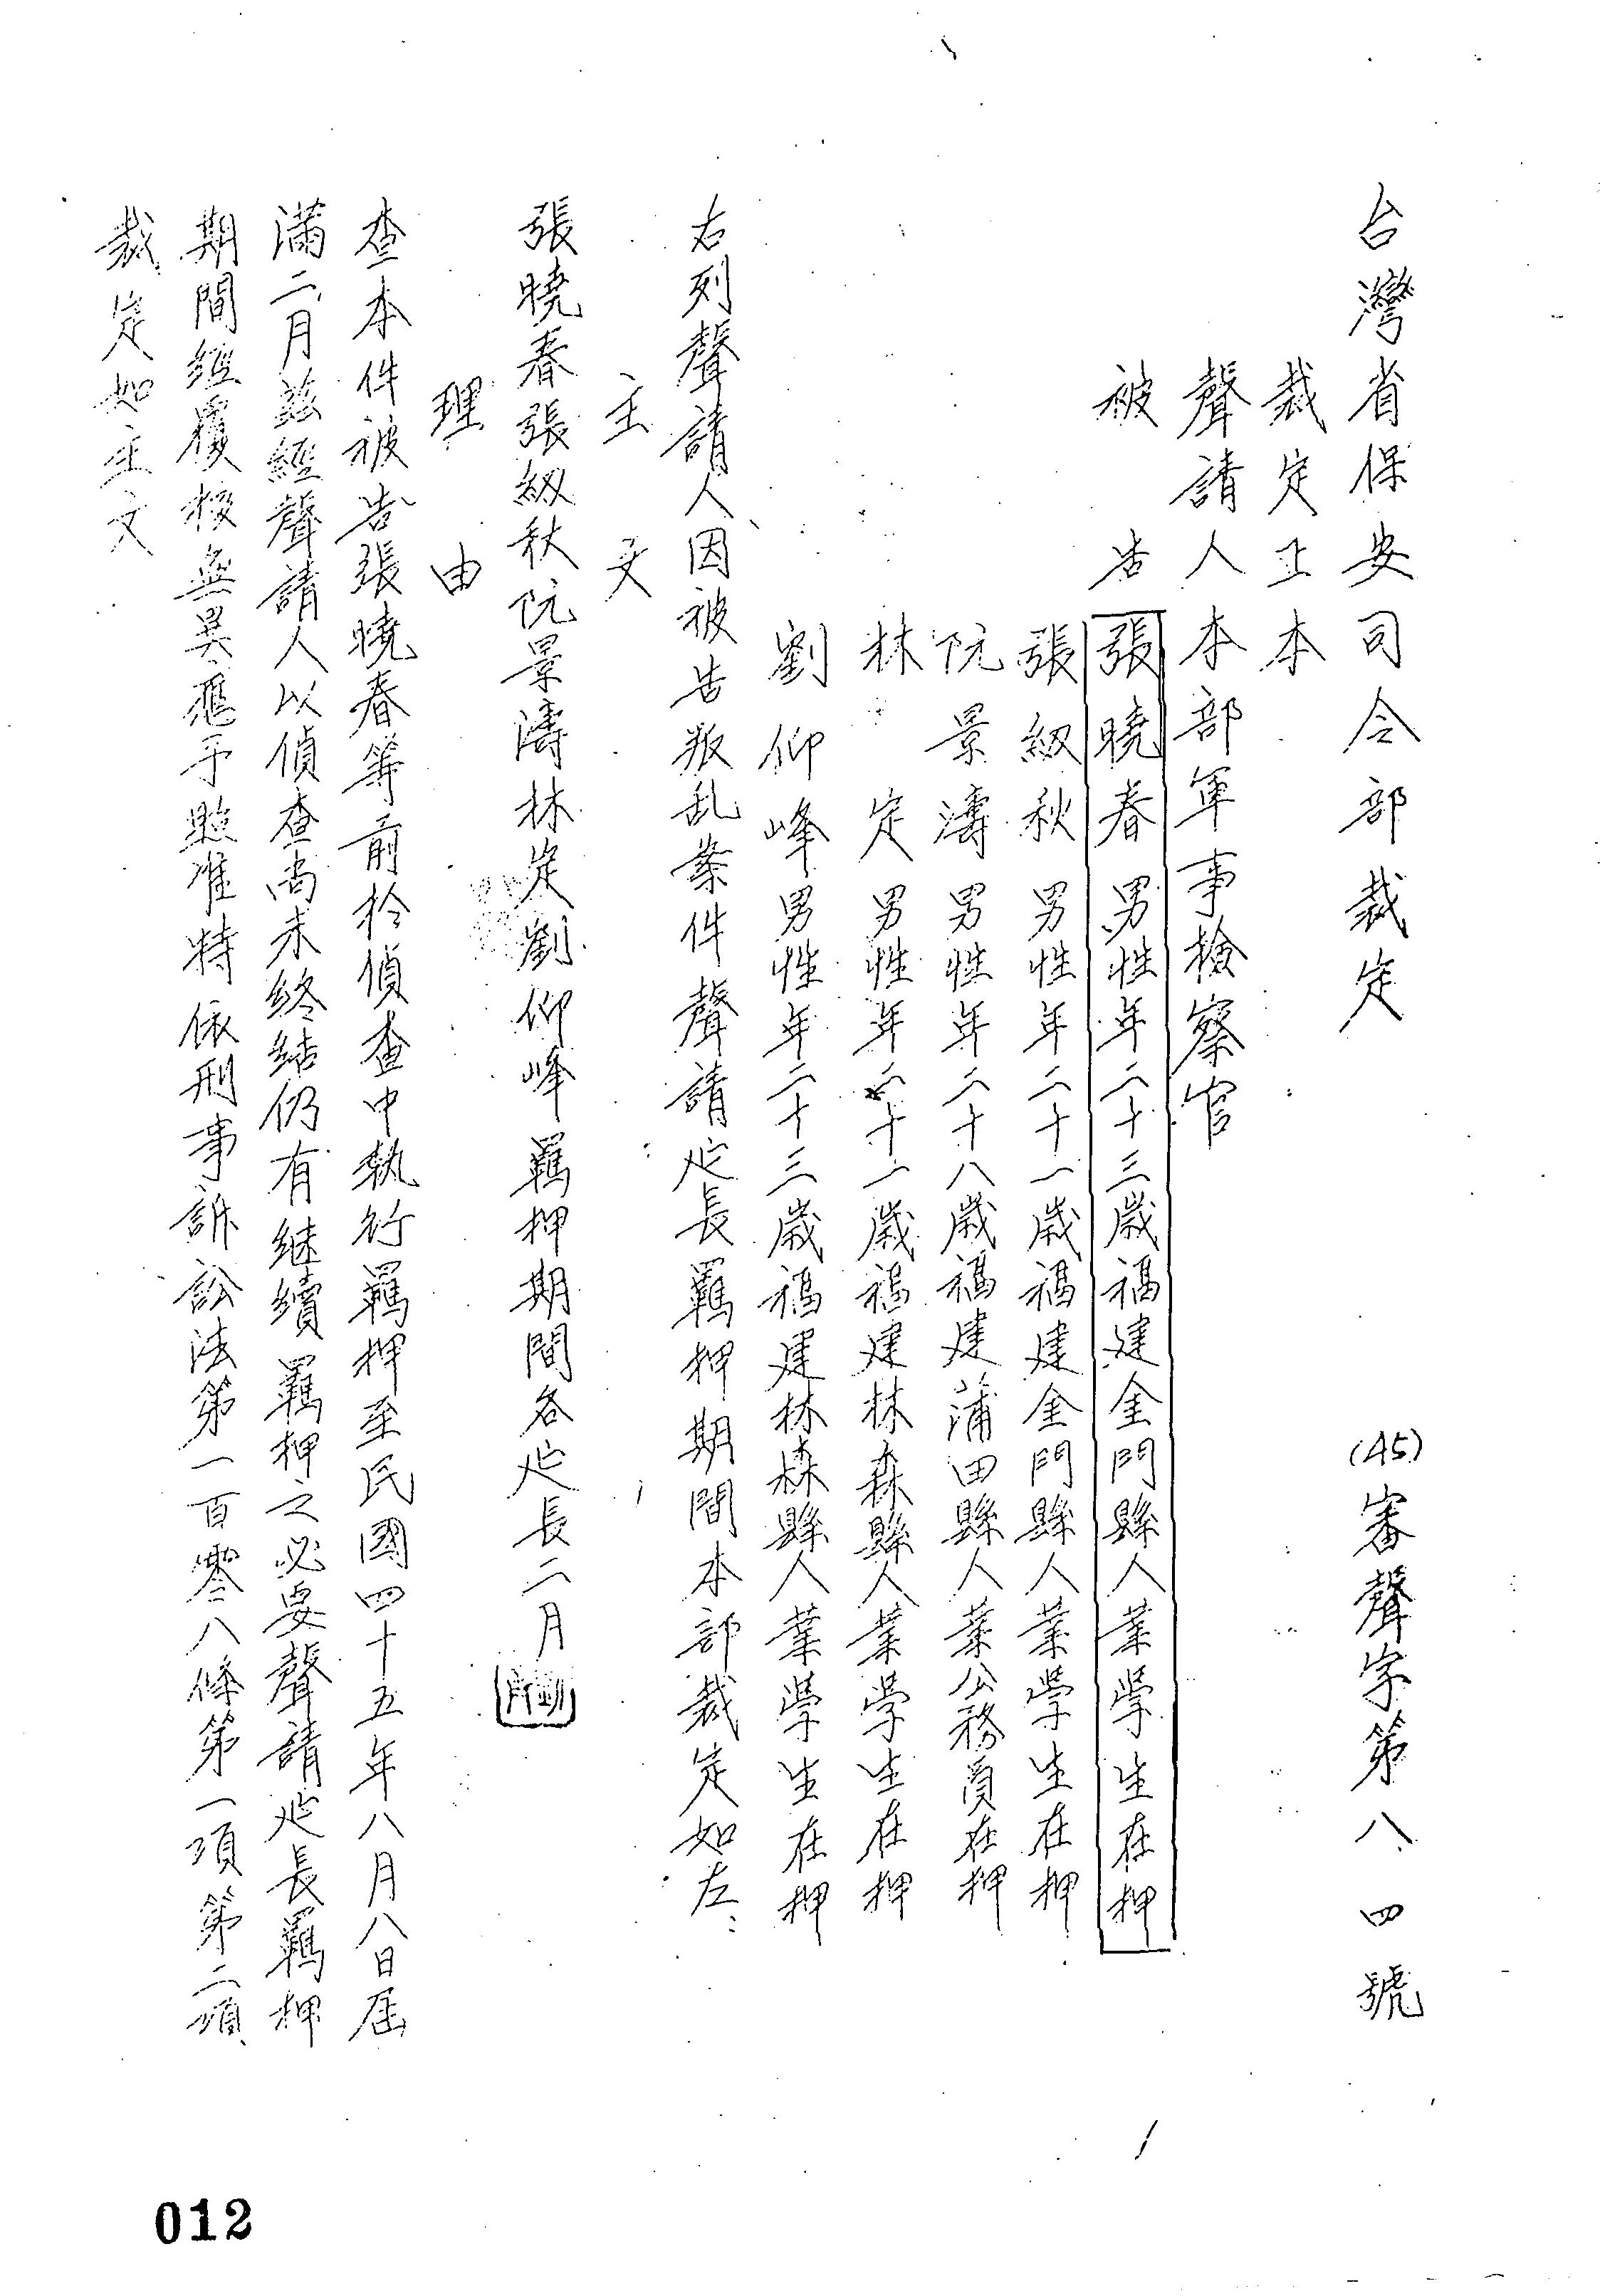 台灣省保安司令部裁定 (45)審聲字第八四號
裁定正本
聲請人本部軍事檢察官
被告 張曉春 男性年二十三歲福建金門縣人業學生在押
張紉秋 男性年二十一歲福建金門縣人業學生在押
阮景濤 男性年二十八歲福建蒲田縣人業公務員在押
林定 男性年二十一歲福建林森縣人業學生在押
劉仰峰 男性年二十三歲福建林森縣人業學生在押
右列聲請人因被告叛乱案件聲請延長羈押期間本部裁定如左：
主文
張曉春張紉秋阮景濤林定劉仰峰羈押期間各延長二月
理由
查本件被告張曉春等前於偵查中執行羈押至民國四十五年八月八日屆
滿二月茲經聲請人以偵查尚未終結仍有继續羈押之必要聲請延長羈押
期間經覆核無異應予照准特依刑事訴訟法第一百零八條第一項第二項
裁定如主文
012